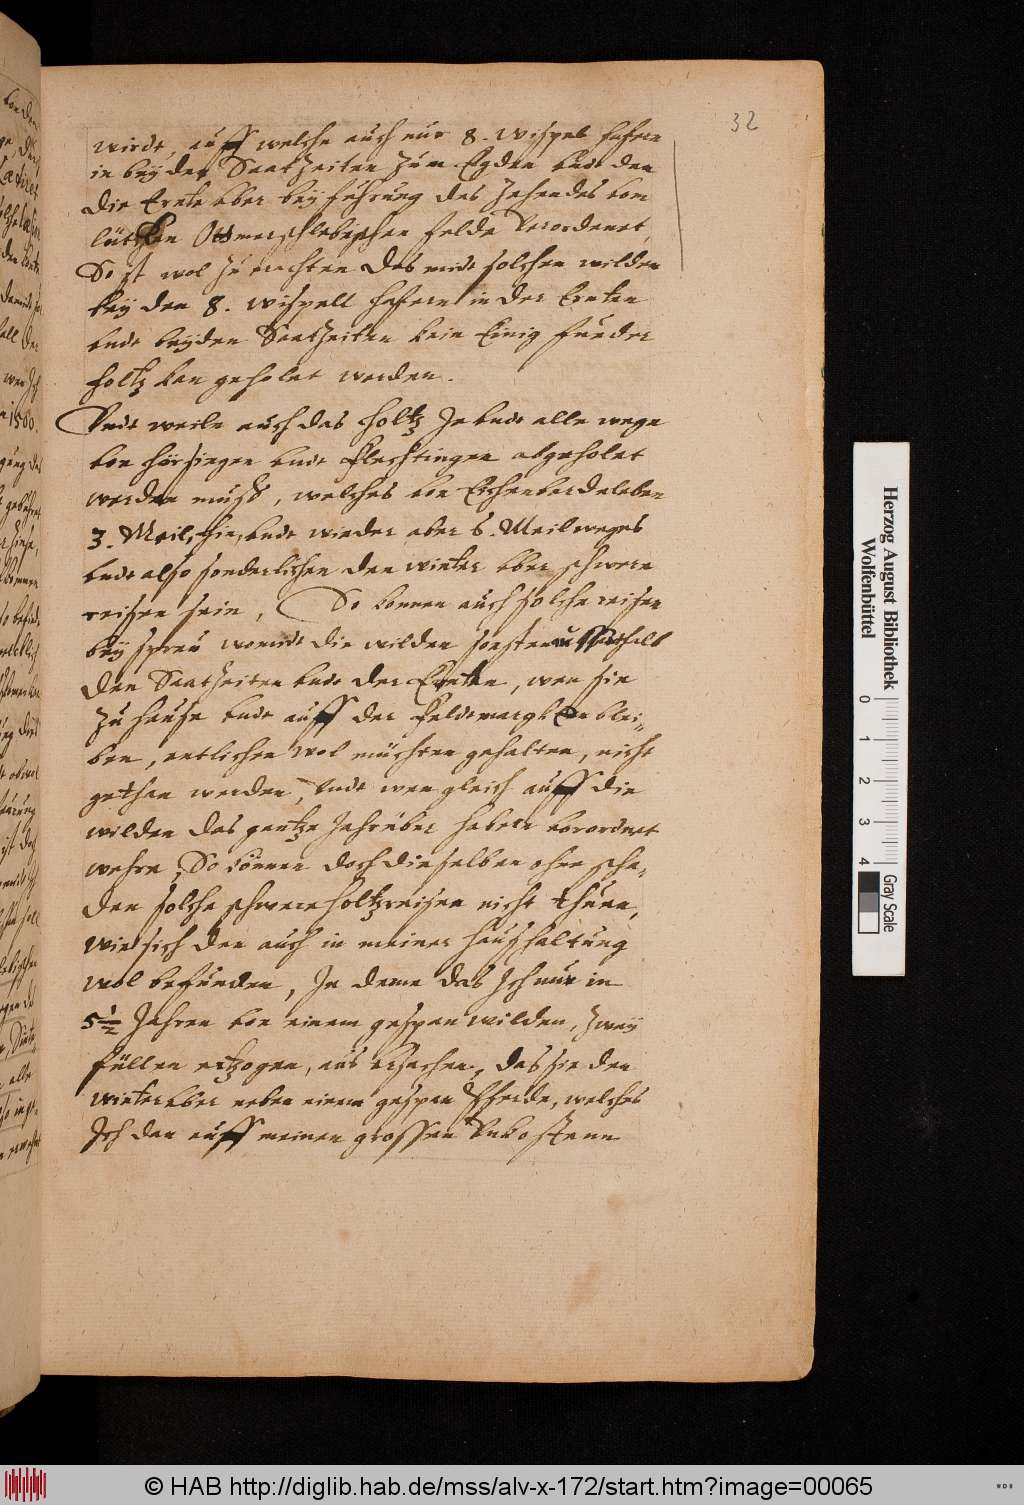 32
wirdt, auff welche auch nur 8. wispel hafern
in beyden Saatzeiten zum Egden vndt den
die Ernte vber bey führung des Zehendes von
Ottmerschlebischen felde verordenet,
So ist wol zu erachten das midt solchen wilden
bey den 8. wispell hafern in der Ernten
vndt beyden Saatzeiten kein Einig fueder
holtz kan geholet werden.
Vndt weile auch das holtz Ja vndt alle wege
von hörsingen vndt Flechtingen abgeholet
werden muß, welches von Eichenbardeleben
3. Meil, hin, vndt wieder aber 6. Meil weges
vndt also sonderlichen den winter vber schwere
reisen sein, So konnen auch solche reisen
bey sprew womidt die wilden sonsten ausserhalb
den Saatzeiten vndt der Ernten, wen sie
zu hause vndt auff der Feldtmargken blei-
ben, entlichen wol müchten gehalten, nicht
gethan werden, Vndt wen gleich auff die
wilden das gantze Jahr vber habern verordnet
wehre, So können doch dieselben ohne scha-
den solche schwere holtzreisen nicht thuen,
wie sich den auch in meiner haushaltung
wol befunden, In deme das Ich nur in
5½ Jahren von einem gespan wilden, zwey
füllen ertzogen, aus vrsachen, das sie den
winter vber neben einem gespan Pferde, welches
Ich den auff meinen grossen Vnkosten
Herzog August Bibliothek
Wolfenbüttel
0 1 2 3 4
Gray Scale
© HAB http://diglib.hab.de/mss/alv-x-172/start.htm?image=00065